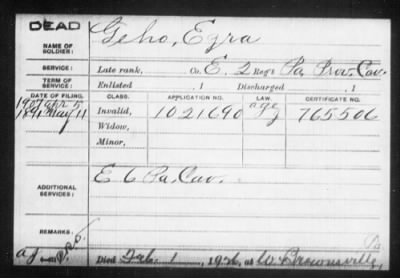 DEAD
NAME OF SOLDIER: Geho, Ezra
SERVICE: Late rank, Co. E, 2 Reg't Pa. Prov. Cav.
TERM OF SERVICE: Enlisted , 1 Discharged , 1
DATE OF FILING. CLASS. APPLICATION NO. LAW. CERTIFICATE NO.
1907 Apr 5 age
1891 May 11 Invalid, 1021690 J 765506
Widow,
Minor,
ADDITIONAL SERVICES: E 6 Pa. Cav.
REMARKS: Pa
Died Feb. 1, 1926, at W. Brownsville,